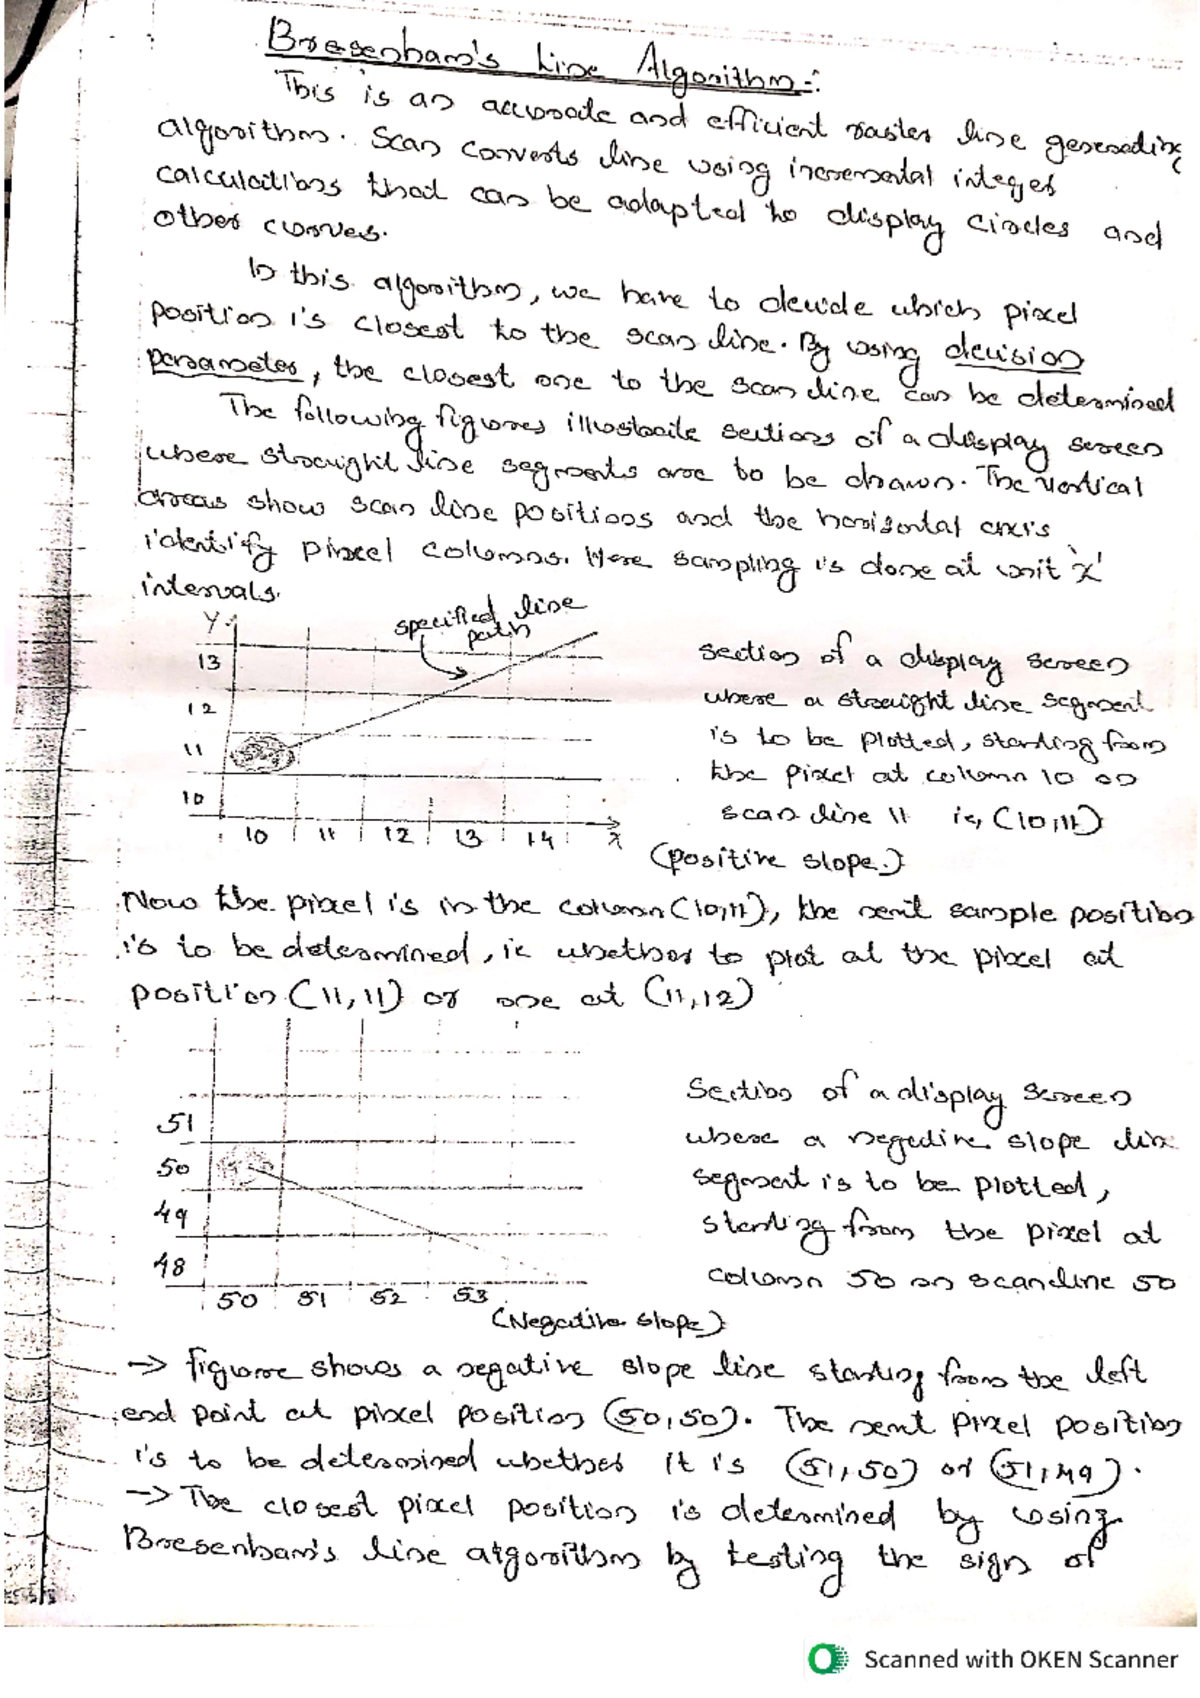 Bresenham's Line Algorithm:-
This is an accurate and efficient raster line generating
algorithm. Scan converts line using incremental integer
calculations that can be adapted to display circles and
other curves.
In this algorithm, we have to decide which pixel
position is closest to the scan line. By using decision
parameter, the closest one to the scan line can be determined
The following figures illustrate sections of a display screen
where straight line segments are to be drawn. The vertical
axes show scan line positions and the horizontal axis
identify pixel columns. Here sampling is done at unit 'x'
intervals.
Y
specified line
path
13
12
11
10
10 11 12 13 14 x
section of a display screen
where a straight line segment
is to be plotted, starting from
the pixel at column 10 on
scan line 11 ie, (10,11)
(positive slope.)
Now the pixel is in the column (10,11), the next sample position
is to be determined, ie whether to plot at the pixel at
position (11,11) or one at (11,12)
51
50
49
48
50 51 52 53
Section of a display screen
where a negative slope line
segment is to be plotted,
starting from the pixel at
column 50 on scanline 50
(Negative slope)
→ figure shows a negative slope line starting from the left
end point at pixel position (50,50). The next pixel position
is to be determined whether it is (51,50) or (51,49).
→ The closest pixel position is determined by using
Bresenham's line algorithm by testing the sign of
Scanned with OKEN Scanner